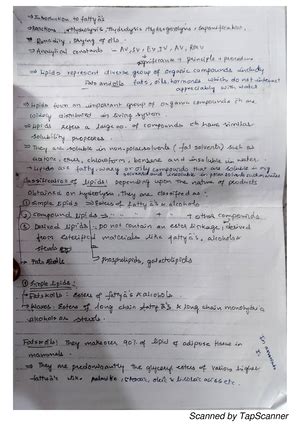 → Introduction to fattya's
→ Reactions → Hydrolysis, Hydrogenation, Saponification,
Rancidity, Drying of oils.
→ Analytical constants – AV, SV, EV, IV, AV, RMV
significance + principle + procedure
→ Lipids represent diverse group of organic compounds including
Fats and oils fats, oils, hormones which do not interact
appreciably with water
→ Lipids form an important group of organic compounds
widely distributed in living system
→ Lipids refers a large no. of compounds have similar
solubility properties
→ They are soluble in non-polar solvents (fat solvents) such as
acetone, ether, chloroform, benzene and insoluble in water.
→ Lipids are fatty, waxy or oily compounds that are soluble in
and insoluble in polar solvents
Classification of Lipids: Depending upon the nature of products
obtained on hydrolysis, They are classified as.
① Simple lipids → Esters of fattya's & alcohols
② Compound lipids → + other compounds.
③ Derived lipids: Do not contain an ester linkage, derived
from esterified materials like fattya's, alcohols
Phospholipids, galactolipids
① Simple lipids:
→ Fats & oils – Esters of fattya's & alcohols
→ Waxes: Esters of long chain fattya's & long chain monohydric
alcohols or sterols.
Fats & oils: They makeover 90% of lipid of adipose tissue in
mammals.
→ They are predominantly the glyceryl esters of various higher
fattya's like oleic & linoleic acids etc.
Scanned by TapScanner